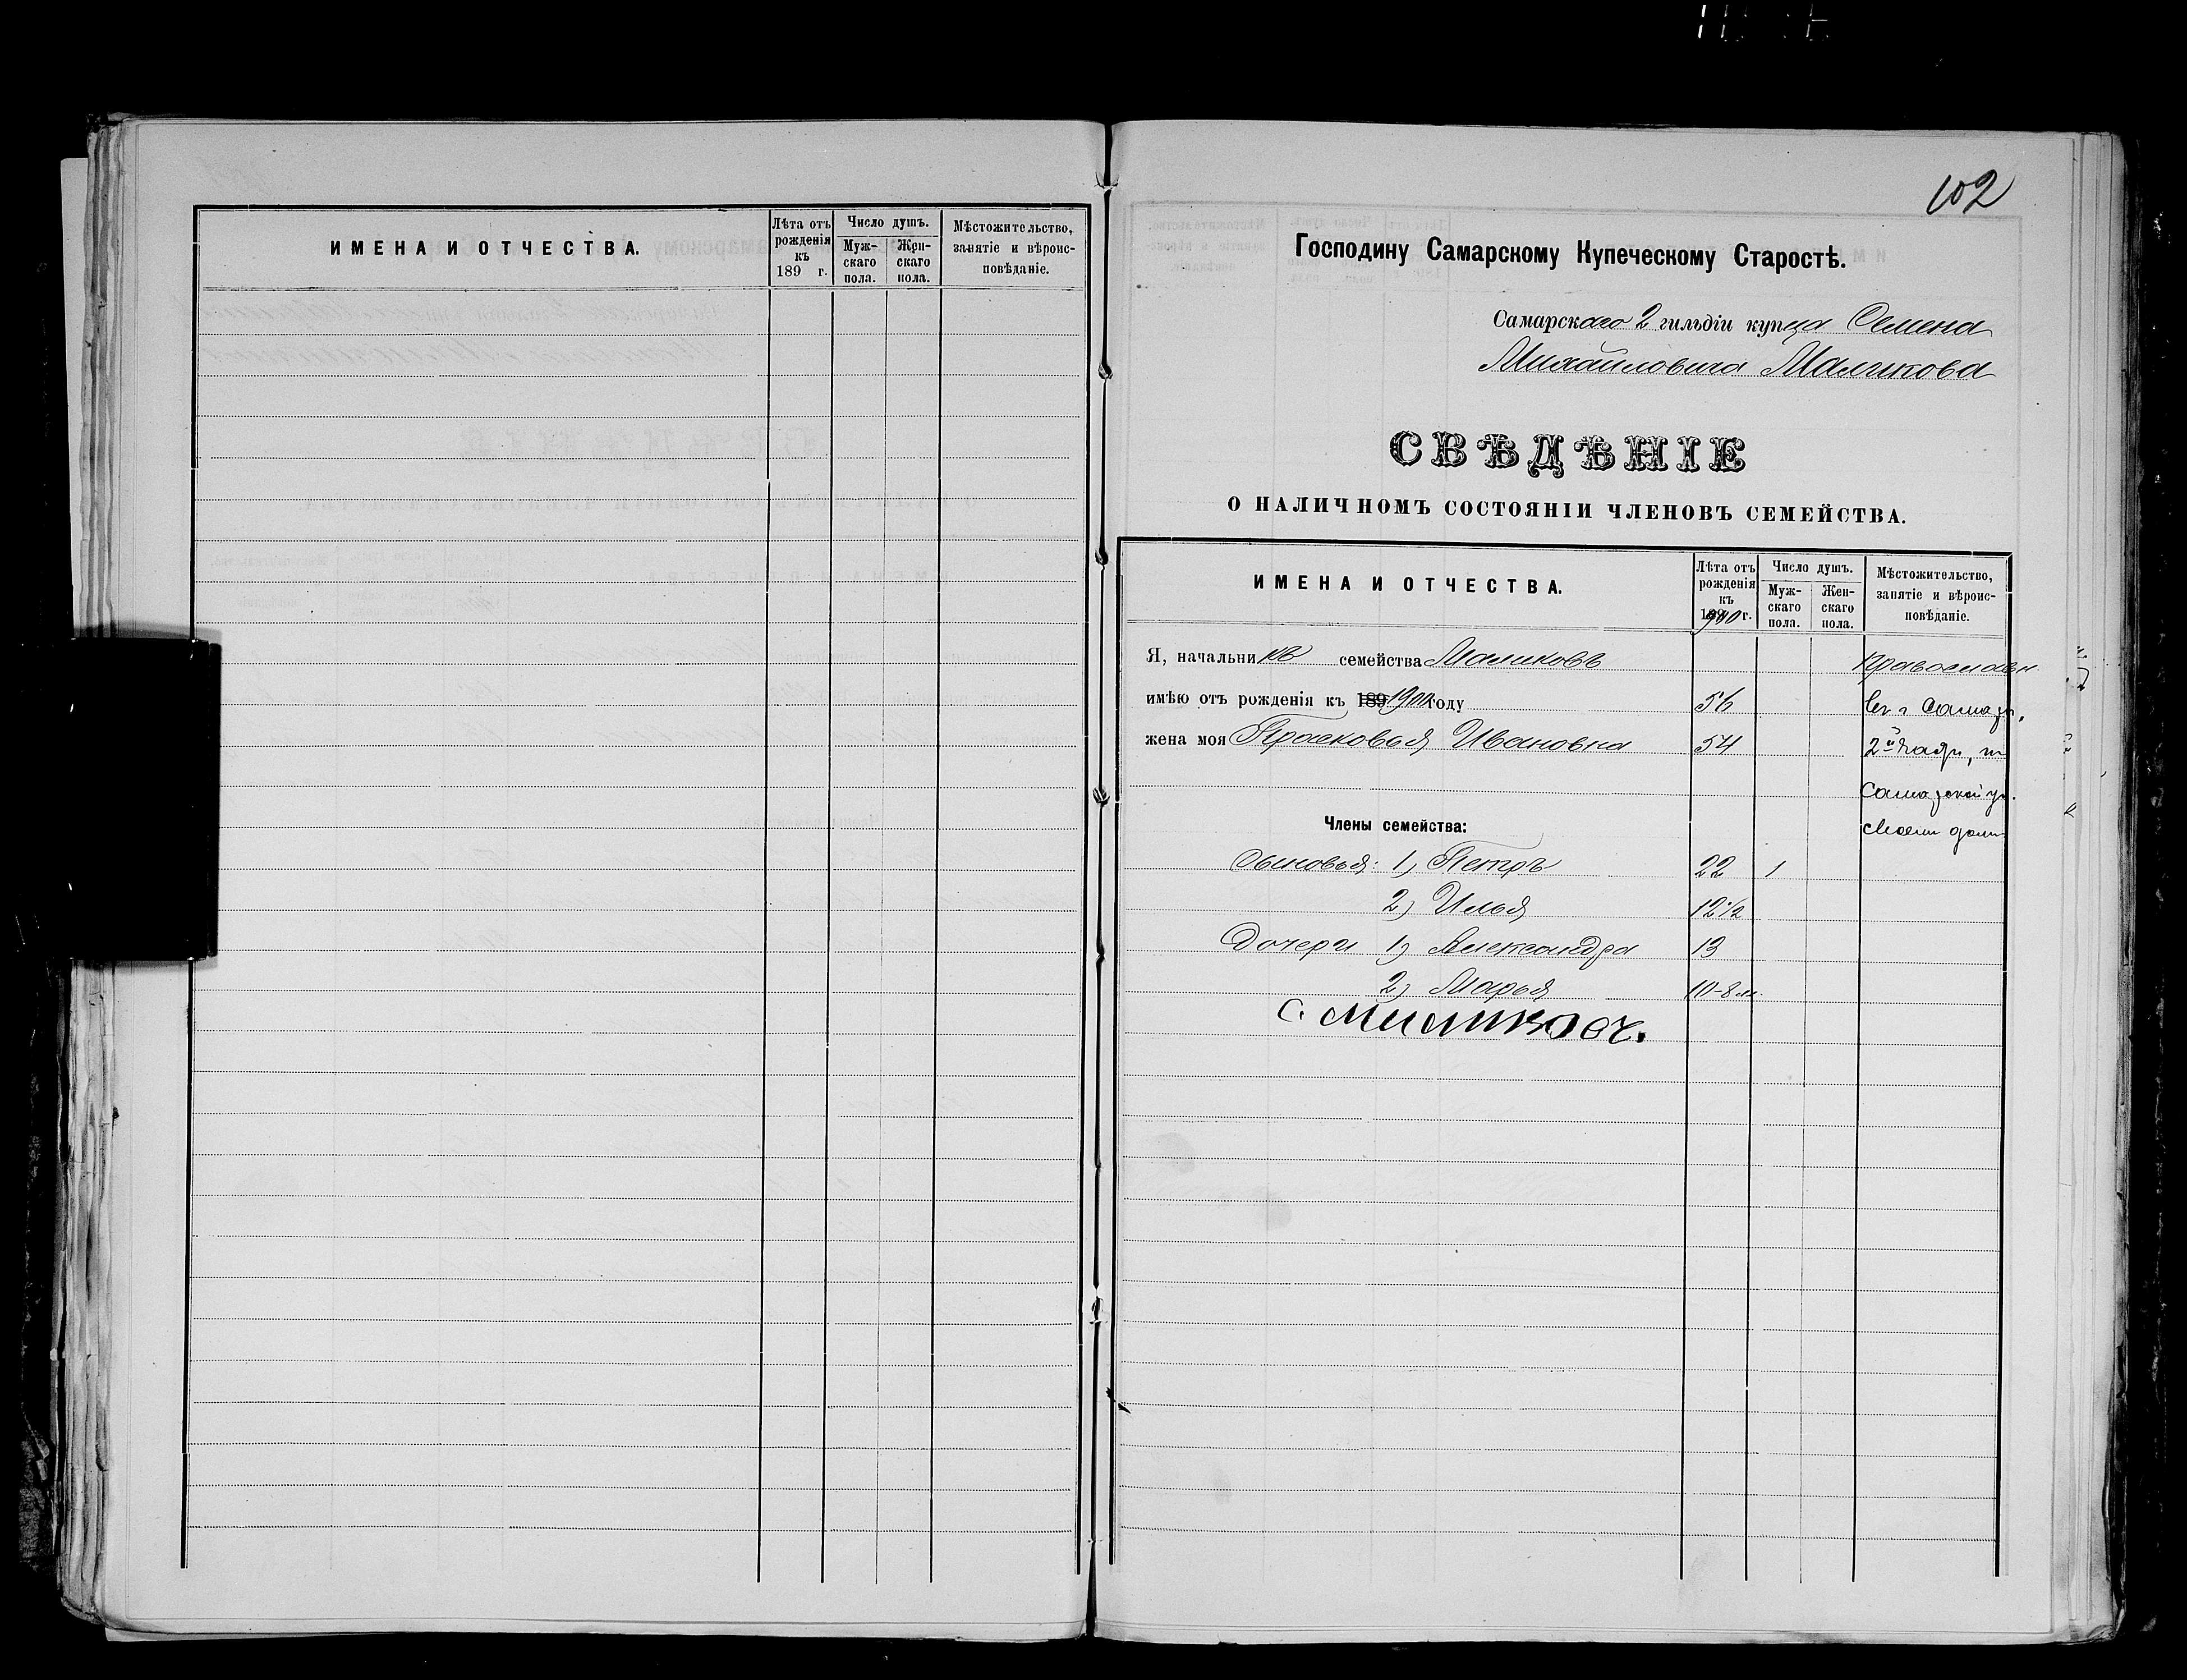 ИМЕНА И ОТЧЕСТВА.
Лѣта отъ рожденія къ 189 г.
Число душъ.
Муж-скаго пола.
Жен-скаго пола.
Мѣстожительство, занятіе и вѣроис-повѣданіе.
102
Господину Самарскому Купеческому Старостѣ.
Самарскаго 2 гильдіи купца Семена
Михайловича Маликова
СВѢДѢНІЕ
О НАЛИЧНОМЪ СОСТОЯНІИ ЧЛЕНОВЪ СЕМЕЙСТВА.
ИМЕНА И ОТЧЕСТВА.
Лѣта отъ рожденія къ 1900 г.
Число душъ.
Муж-скаго пола.
Жен-скаго пола.
Мѣстожительство, занятіе и вѣроис-повѣданіе.
Я, начальникъ семейства Маликовъ православн
имѣю отъ рожденія къ 189 1900 году 56 Самар.
жена моя Прасковья Ивановна 54 2й части,
Самарской ул.
Члены семейства: своем дом
Сыновья: 1) Петръ 22 1
2) Илья 12 1/2
Дочери 1) Александра 13
2) Марья 10-8 м.
С. Маликовъ.